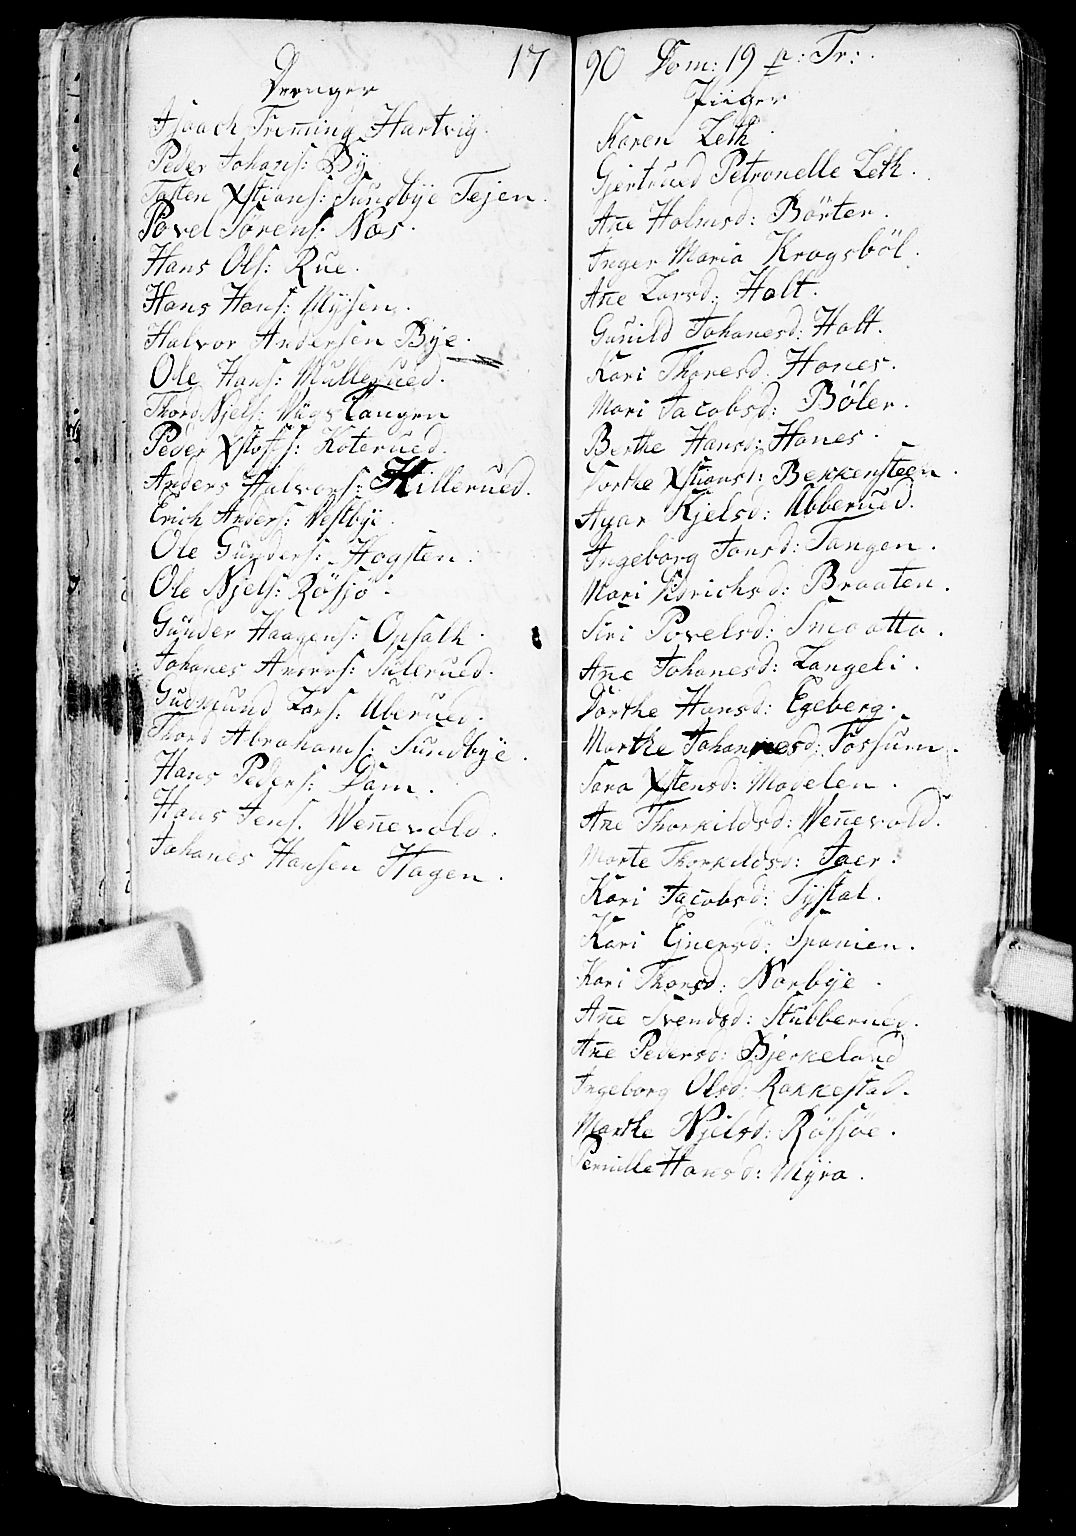 1790 Dom: 19 p: Tr:
Drenger
Isaach Treming Hartvig.
Peder Johans: By
Tosten Xstians: Sundbye Tejen.
Povel Sørens: Næs.
Hans Ols: Rue.
Hans Hans: Mysen.
Halvor Andersen Bye.
Ole Hans: Mullerued.
Thord Njels: Tangen
Peder Xstofs: Koterued.
Anders Halvors: Killerued.
Erich Anders: Vestbye.
Ole Gunders: Hogsten.
Ole Njels: Rösjö.
Gunder Haagens: Opsalh.
Johanes Anders: Sulerued.
Gudmund Lars: Uberued.
Thord Abrahams: Sundbye.
Hans Peders: Dam.
Hans Jens. Wen̄evold.
Johanes Hansen Hagen.
Piiger
Karen Leth.
Gjertrued Petronelle Leth.
An̄e Holmsd: Börter.
Inger Maria Kragsböl.
An̄e Larsd: Holt.
Gunild Johanesd: Holt.
Kari Thoresd. Hanes.
Mari Jacobsd: Böler.
Berthe Hansd: Hanes.
Dorthe Xstiansd: Bekkensteen.
Agar Kjelsd: Ubberued.
Ingeborg Jansd: Tangen.
Mari Fridrichsd: Braaten.
Siri Povelsd: Smaatta.
An̄e Johanesd: Langeli.
Dorthe Hansd: Egeberg.
Marthe Johannesd: Fossum.
Sara Xstensd: Modelen.
An̄e Thorkildsd: Wen̄evold.
Marte Thorkildsd: Joer.
Kari Jacobsd: Tystal.
Kari Ejnersd: Spanien.
Kari Thorsd: Norbye.
An̄e Svendsd: Stubberued.
An̄e Pedersd: Bjerkeland
Ingeborg Olsd: Rakkestad.
Marthe Njelsd: Rösjöe.
Pernille Hansd: Myra.